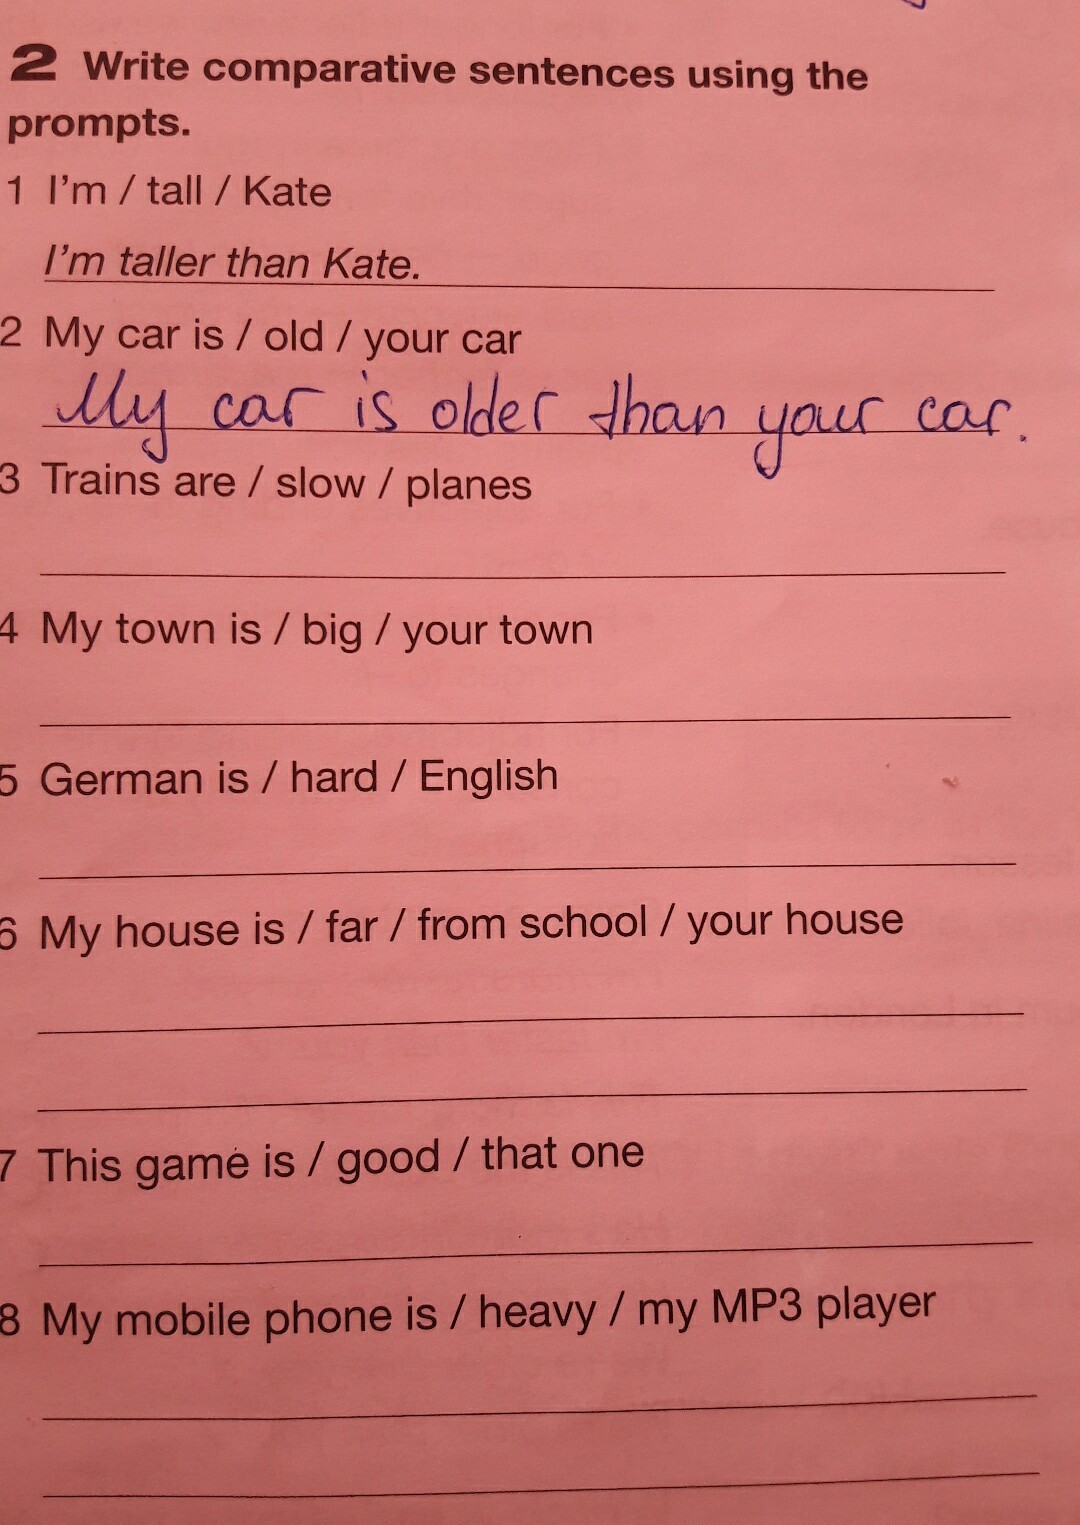 2 Write comparative sentences using the
prompts.
1 I'm / tall / Kate
I'm taller than Kate.
2 My car is / old / your car
My car is older than your car.
3 Trains are / slow / planes
4 My town is / big / your town
5 German is / hard / English
6 My house is / far / from school / your house
7 This game is / good / that one
8 My mobile phone is / heavy / my MP3 player